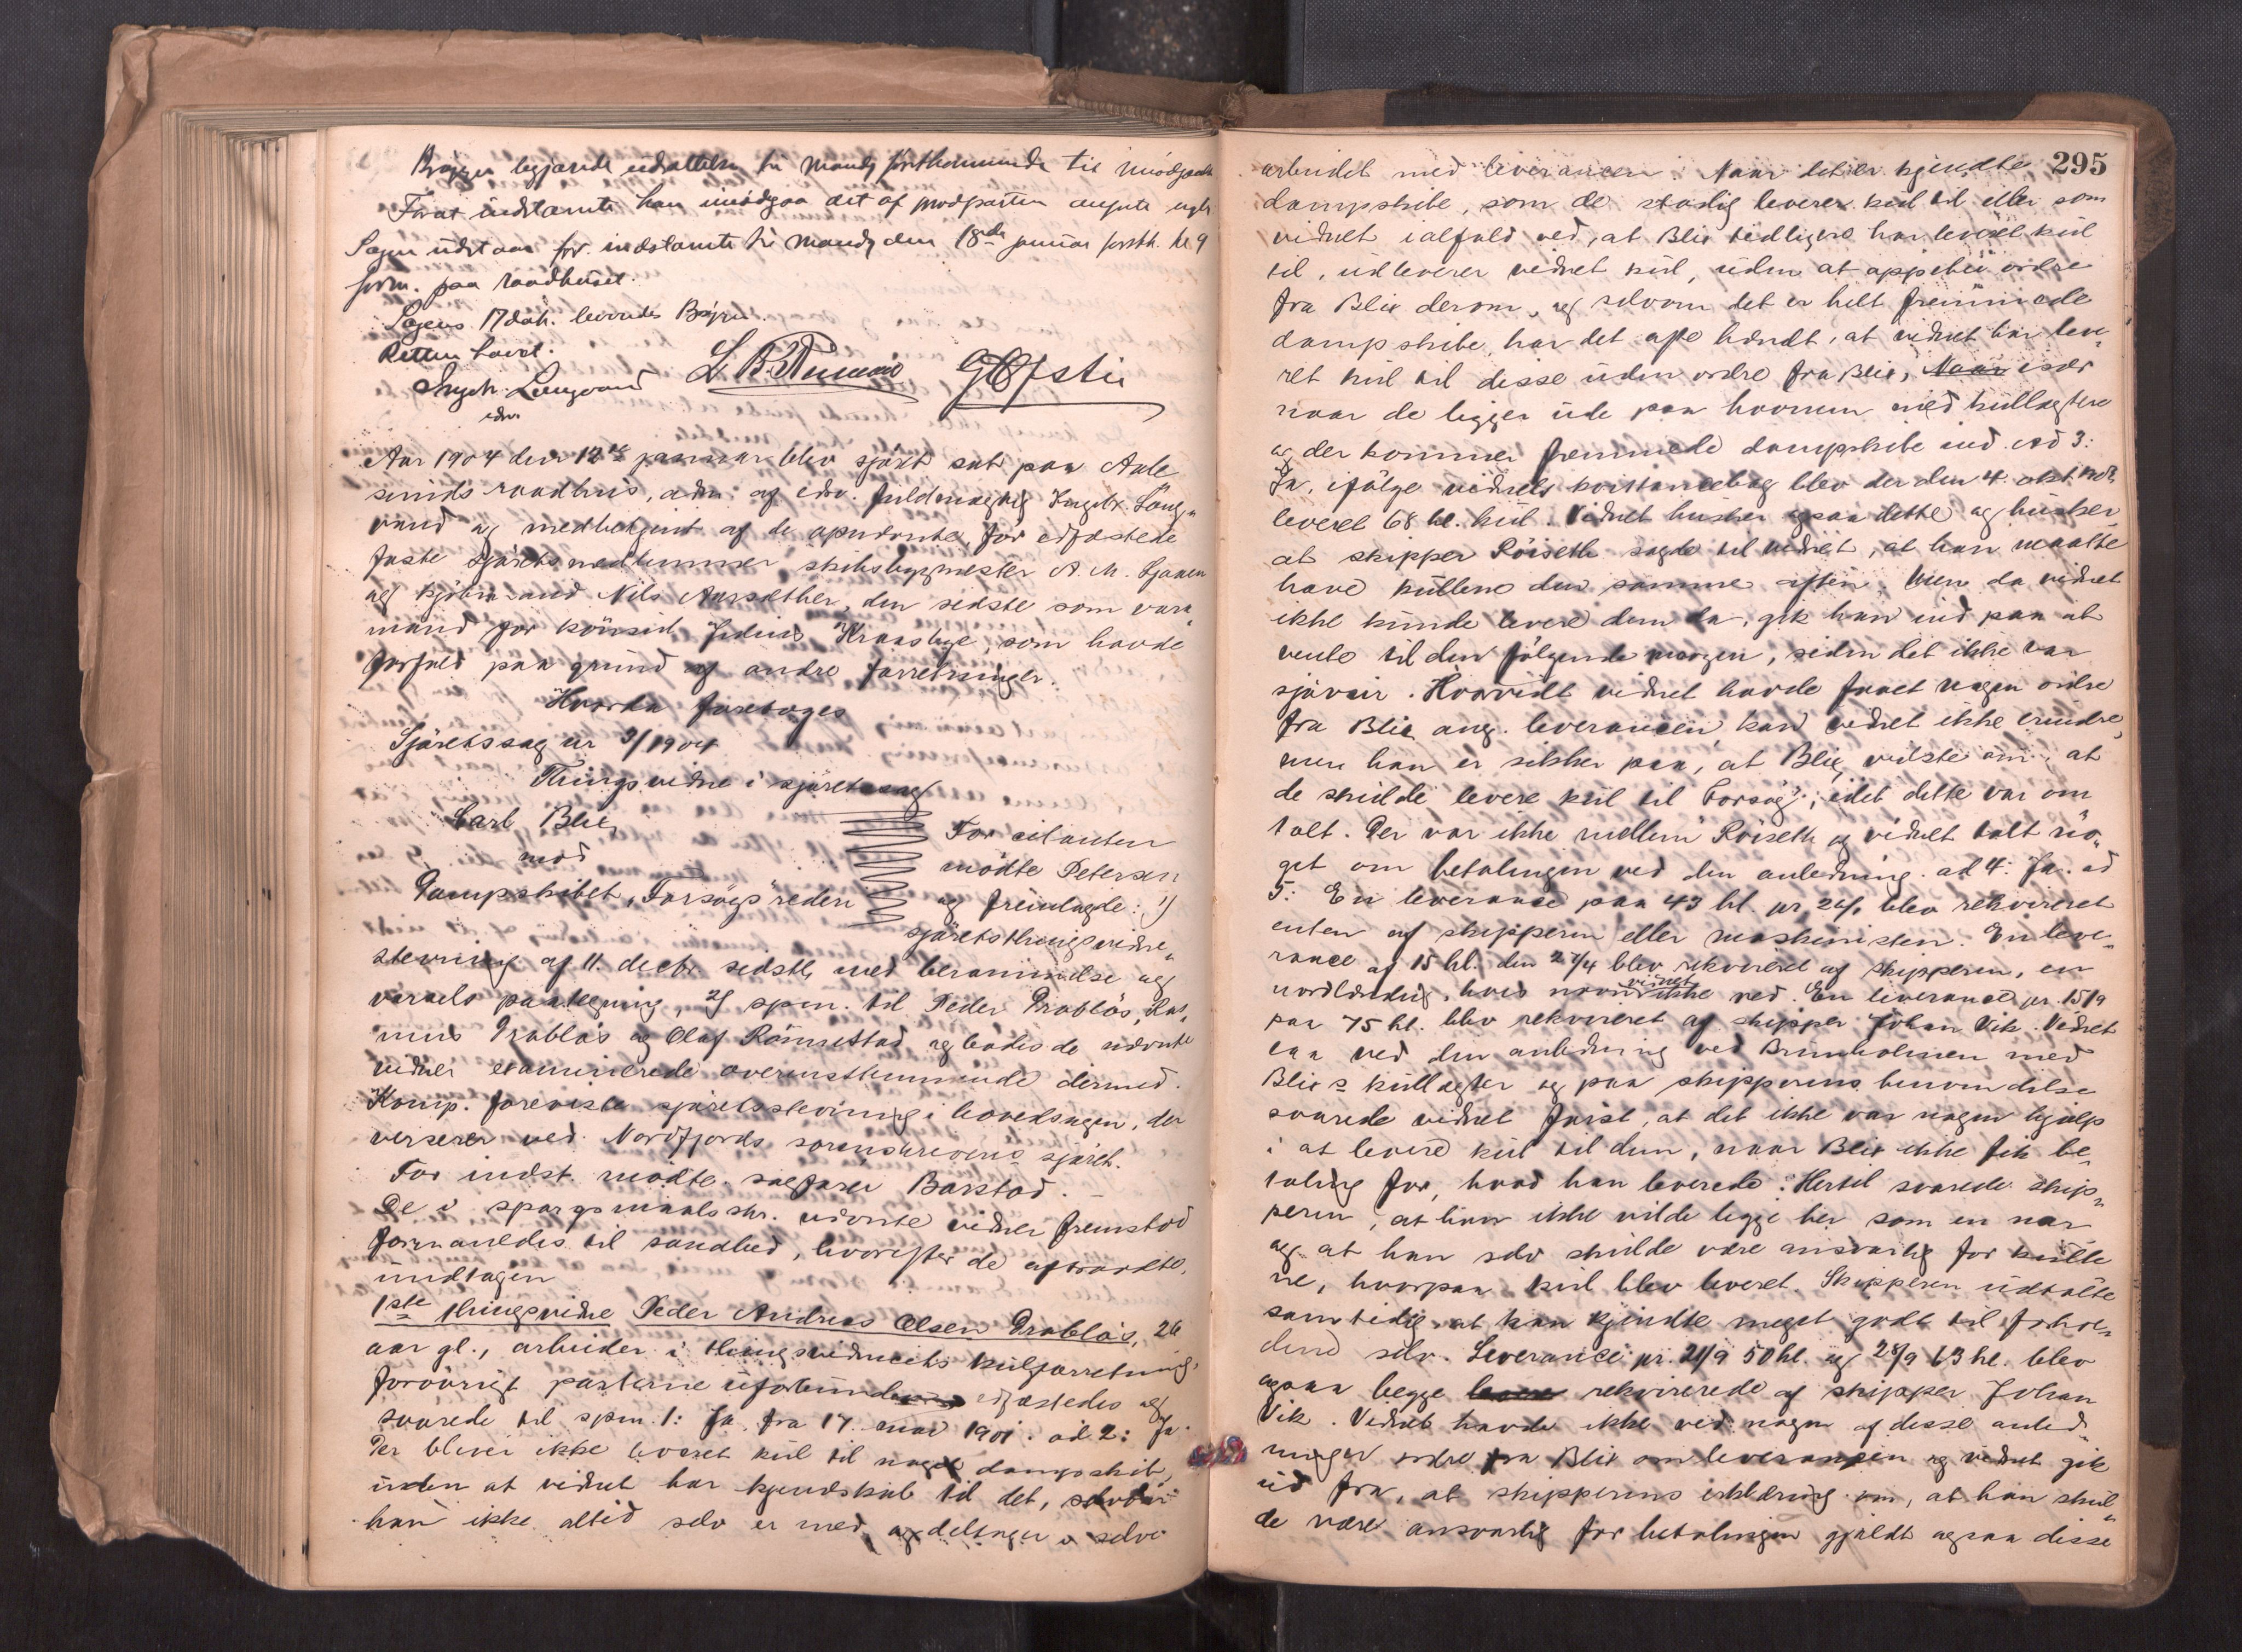 begjærede udsættelse til mandg førstkommende til imødegaaelse
For at indstævnte kan imødegaa det af modparten anførte
Sagen udstaar for indstævnte til mandg den 18de januar førstk. kl 9
form. paa raadhuset.
Sagens 17 dok. leveredes
Retten hævet.
Ingebr. Langvand
edsv.
Aar 1904 den 12te januar blev sjöret sat paa Aale
sunds raadhus, adm. af edsv. fuldmægtig Ingebr. Lang„
vand og medbetjent af de opnævnte, før edfæstede
faste sjöretsmedlemmer skibsbygmester A. M. Liaaen
og kjöbmand Nils Aarsæther, den sidste som vara„
mand for konsul Julius Kraasbye, som havde
forfald paa grund af andre forretninger.
Hvorda foretoges
Sjöretssag nr 3/1904
Thingsvidne i sjöretssag
Carl Blix
mod
Dampskibet „Forsøgs" rederi
For citanten
mödte Petersen
og fremlagde: 1)
sjöretsthingsvidne„
stevning af 11. decbr sidstl. med berammelse og
varsels paategning, 2) spm. til Peder Drabløs, Ras„
mus Drabløs og Olaf Rönnestad og lodes de nævnte
vidner examinerede overensstemmende dermed.
Komp. foreviste sjöretsstevning i hovedsagen, der
verserer ved Nordfjords sorenskrivers sjöret.
For indst. mödte sagförer Barstad. –
De i spörgsmaalsskr. nævnte vidner fremstod
formanedes til sandhed, hvorefter de aftraadte,
undtagen
1ste thingsvidne Peder Andreas Olsen Drabløs, 26
aar gl., arbeider i thingsvidnets kulforretning,
forövrigt parterne uforbunden edfæstedes og
svarede til spm. 1: Ja fra 17. mai 1901. ad 2: Ja.
Der blever ikke leveret kul til noget dampskib,
uden at vidnet har kjendskab til det, selvom
han ikke altid selv er med og deltager i selve
295
arbeidet med leverancen. Naar det er kjendte
dampskibe, som de stadig leverer kul til eller som
vidnet ialfald ved, at Blix tidligere har leveret kul
til, udleverer vidnet kul, uden at oppebie ordre
fra Blix derom, og selvom det er helt fremmede
dampskibe, har det ofte hændt, at vidnet har leve„
ret kul til disse uden ordre fra Blix, især
naar de ligger ude paa havnen med kullægtere
og der kommer fremmede dampskibe ind. ad 3:
Ja, ifölge vidnets kvittancebog blev der den 4. okt.
leveret 68 hl. kul. Vidnet husker ogsaa dette og husker
at skipper Röiseth sagde til vidnet, at han maatte
have kullene den samme aften. Men da vidnet
ikke kunde levere dem da, gik han ind paa at
vente til den fölgende morgen, siden det ikke var
sjöveir. Hvorvidt vidnet havde faaet nogen ordre
fra Blix ang. leverancen, kan vidnet ikke erindre,
men han er sikker paa, at Blix vidste om, at
de skulde levere kul til „Forsøg", idet dette var om
talt. Der var ikke mellem Röiseth og vidnet talt no„
get om betalingen ved den anledning. ad 4: Ja. ad
5: En leverance paa 43 hl. pr. blev rekvireret
enten af skipperen eller maskinisten. En leve„
rance af 15 hl. den 27/4 blev rekvireret af skipperen, en
nordlænding, hvis navn vidnet ikke ved. En leverance pr. 15/9
paa 75 hl. blev rekvireret af skipper Johan Vik. Vidnet
laa ved den anledning ved Brunholmen med
Blix's kullægter og paa skipperens henvendelse
svarede vidnet först, at det ikke var nogen hjælp
i at levere kul til dem, naar Blix ikke fik be„
taling for, hvad han leverede. Hertil svarede skip„
peren, at han ikke vilde ligge her som en nar
og at han selv skulde være ansvarlig for kulle
ne, hvorpaa kul blev leveret. Skipperen udtalte
samtidig, at han kjendte meget godt til forhol„
dene selv. Leverance pr. 21/9 50 hl. og 28/9 63 hl. blev
ogsaa begge rekvirerede af skipper Johan
Vik. Vidnet havde ikke ved nogen af disse anled„
ninger ordre fra Blix om leverancen og vidnet gik
ud fra, at skipperens erklæring om, at han skul„
de være ansvarlig for betalingen gjaldt ogsaa disse